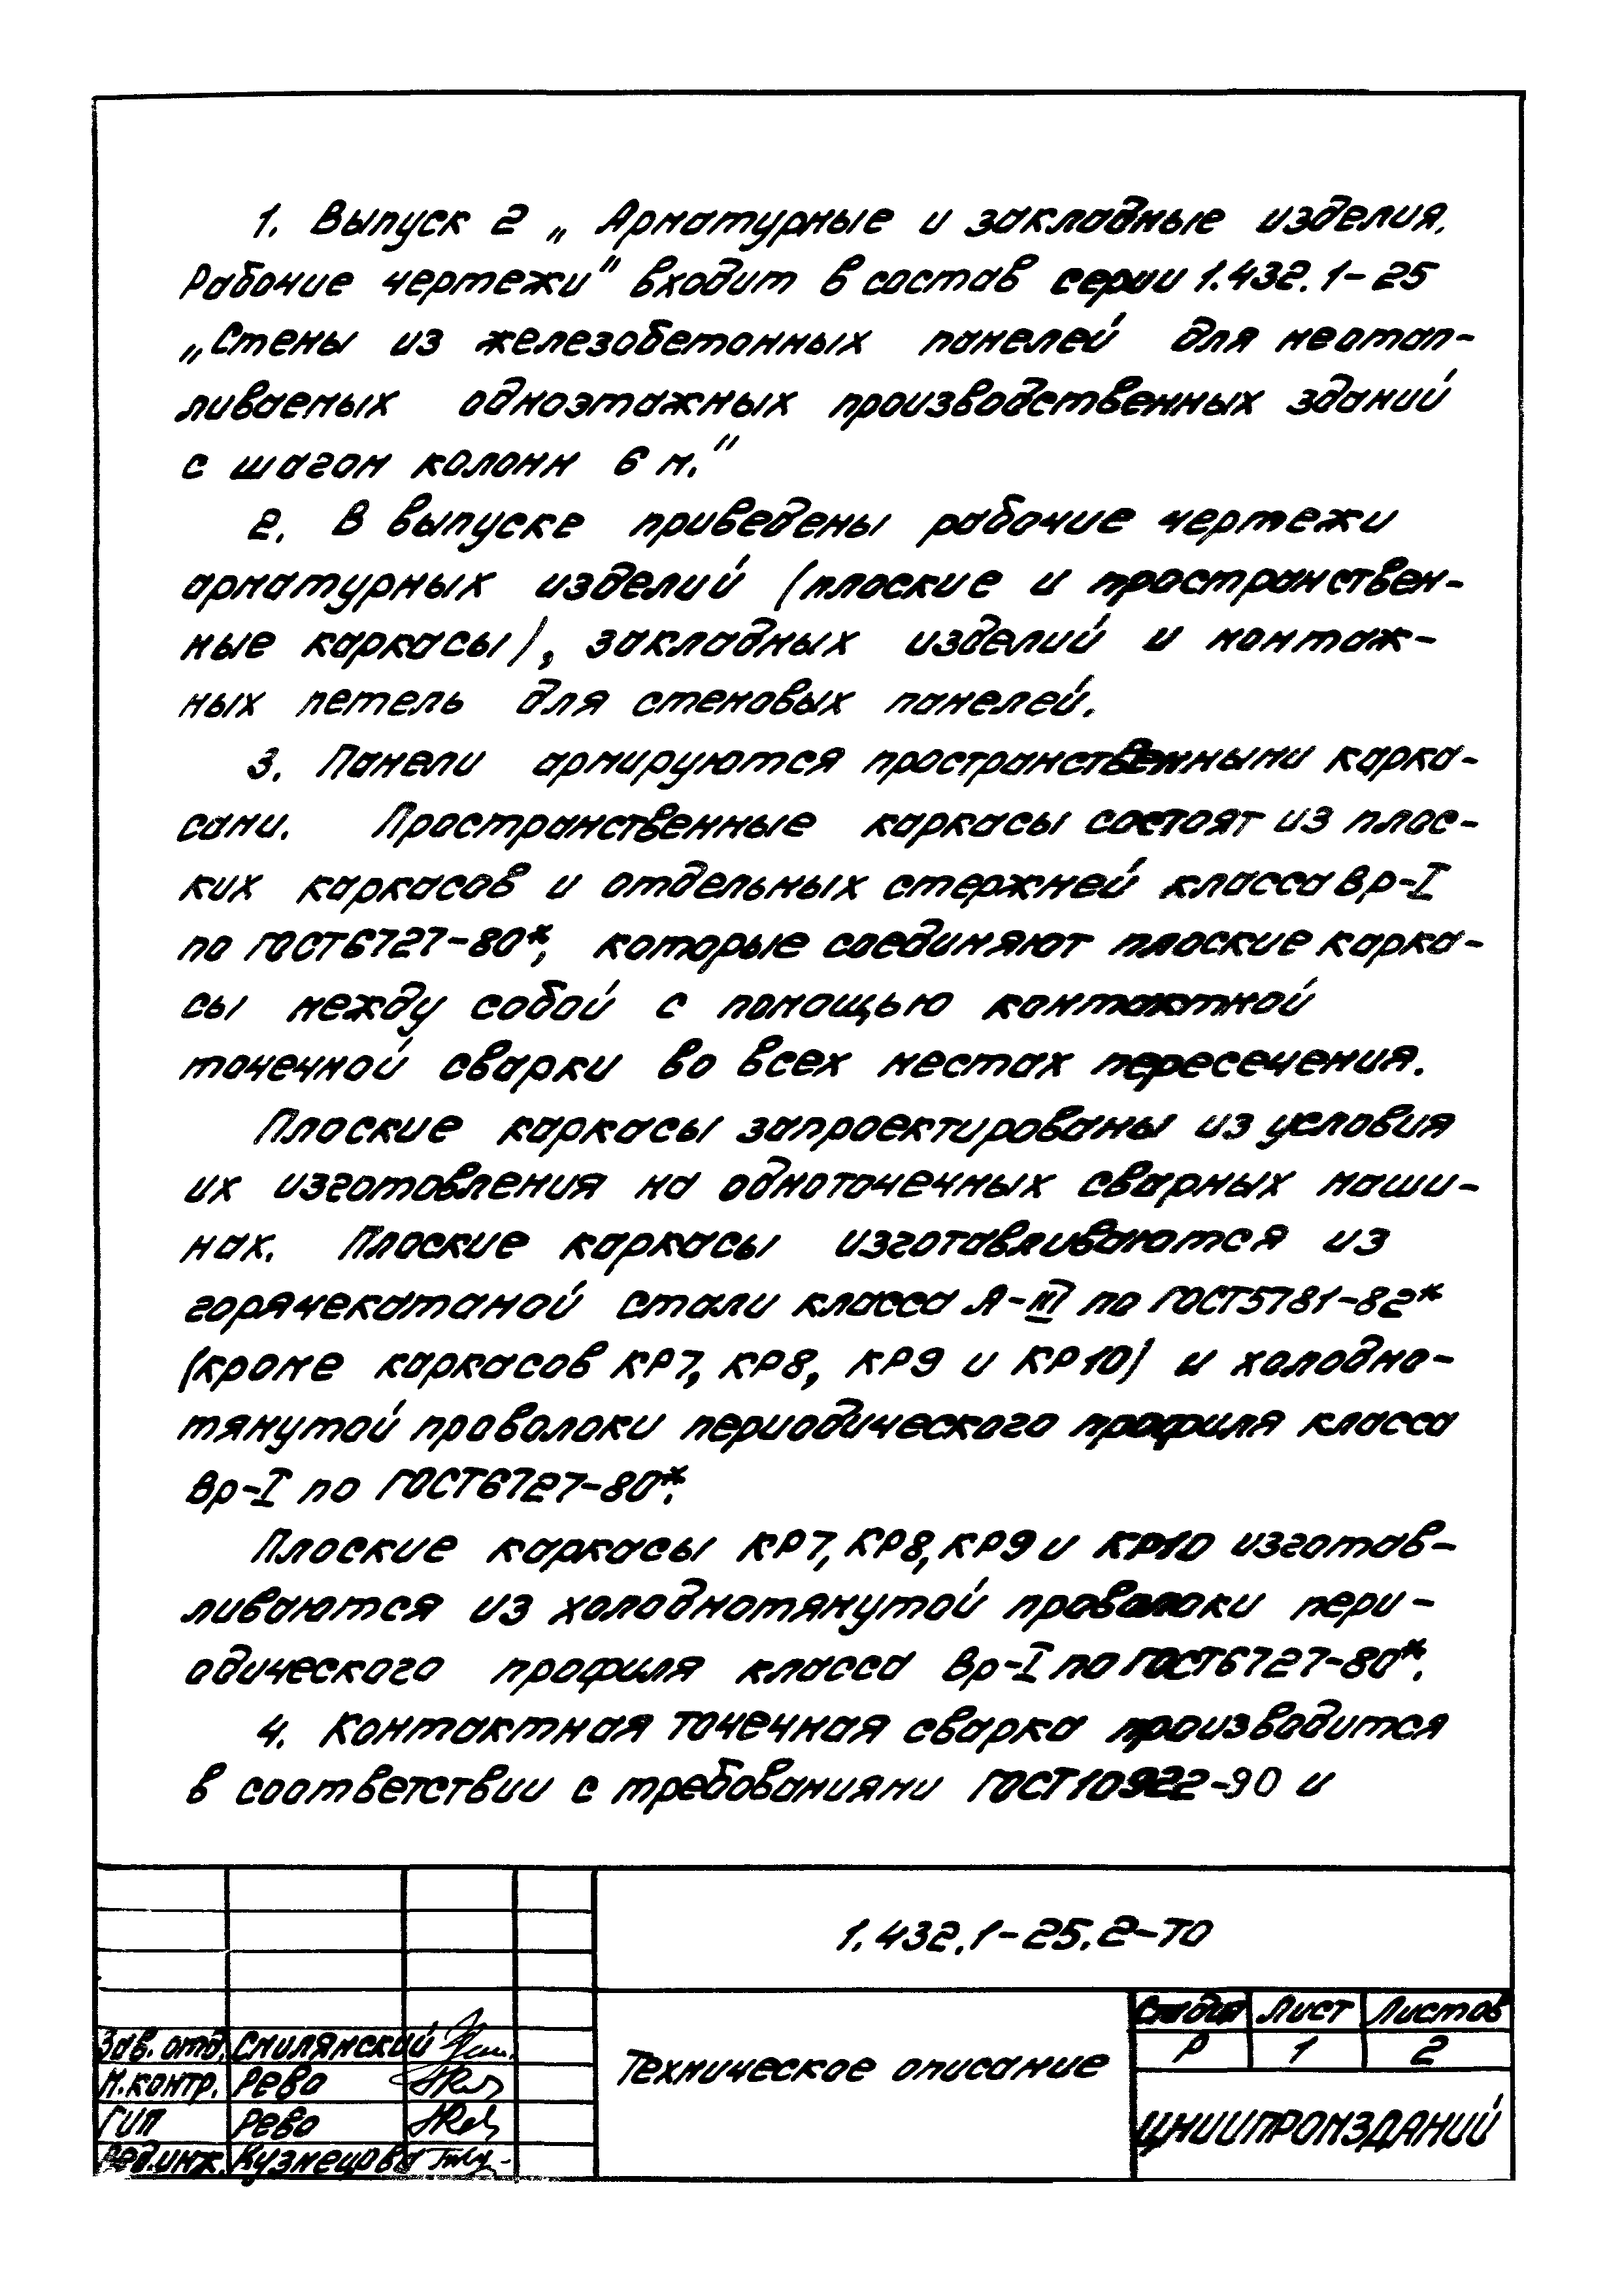 1. Выпуск 2 „Арматурные и закладные изделия.
Рабочие чертежи" входит в состав серии 1.432.1-25
„Стены из железобетонных панелей для неотап-
ливаемых одноэтажных производственных зданий
с шагом колонн 6 м."
2. В выпуске приведены рабочие чертежи
арматурных изделий (плоские и пространствен-
ные каркасы), закладных изделий и монтаж-
ных петель для стеновых панелей.
3. Панели армируются пространственными карка-
сами. Пространственные каркасы состоят из плос-
ких каркасов и отдельных стержней класса Вр-I
по ГОСТ 6727-80*, которые соединяют плоские карка-
сы между собой с помощью контактной
точечной сварки во всех местах пересечения.
Плоские каркасы запроектированы из условия
их изготовления на одноточечных сварных маши-
нах. Плоские каркасы изготавливаются из
горячекатаной стали класса А-III по ГОСТ 5781-82*
(кроме каркасов КР7, КР8, КР9 и КР10) и холодно-
тянутой проволоки периодического профиля класса
Вр-I по ГОСТ 6727-80*.
Плоские каркасы КР7, КР8, КР9 и КР10 изготав-
ливаются из холоднотянутой проволоки пери-
одического профиля класса Вр-I по ГОСТ 6727-80*.
4. Контактная точечная сварка производится
в соответствии с требованиями ГОСТ 10922-90 и
1.432.1-25.2-ТО
Стадия Лист Листов
Р 1 2
Зав. отд. Смилянский
Н.контр. Рево
ГИП Рево
Вед.инж. Кузнецова
Техническое описание
ЦНИИПРОМЗДАНИЙ